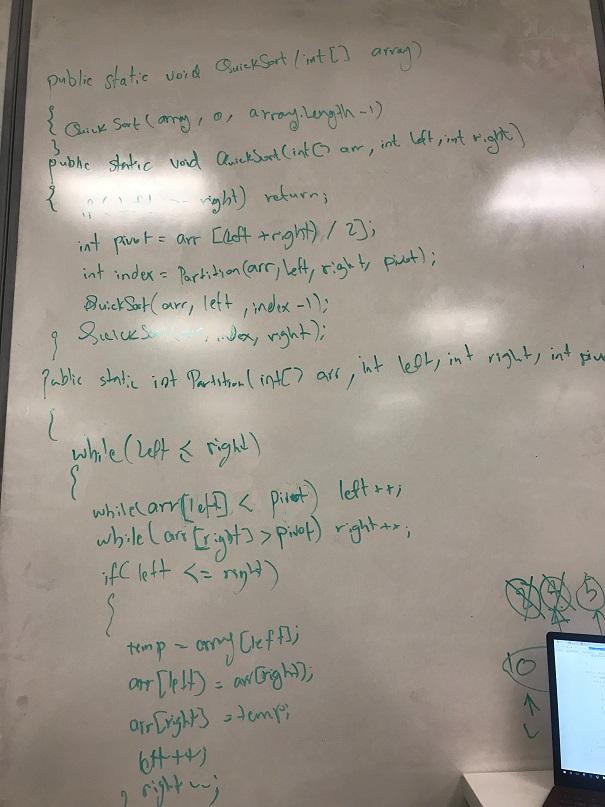 public static void QuickSort(int[] array)
{
QuickSort(array, 0, array.length-1)
}
public static void QuickSort(int[] arr, int left, int right)
{
right) return;
int pivot = arr [(left + right) / 2];
int index = Partition(arr, left, right, pivot);
QuickSort(arr, left, index -1);
QuickSort( index, right);
}
Public static int Partition(int[] arr, int left, int right, int
{
while(left ≤ right)
{
while(arr[left] < pivot) left++;
while(arr[right] > pivot) right++;
if(left <= right)
{
temp = array[left];
arr[left] = arr[right];
arr[right] = temp;
left++;
right--;
5
10
L